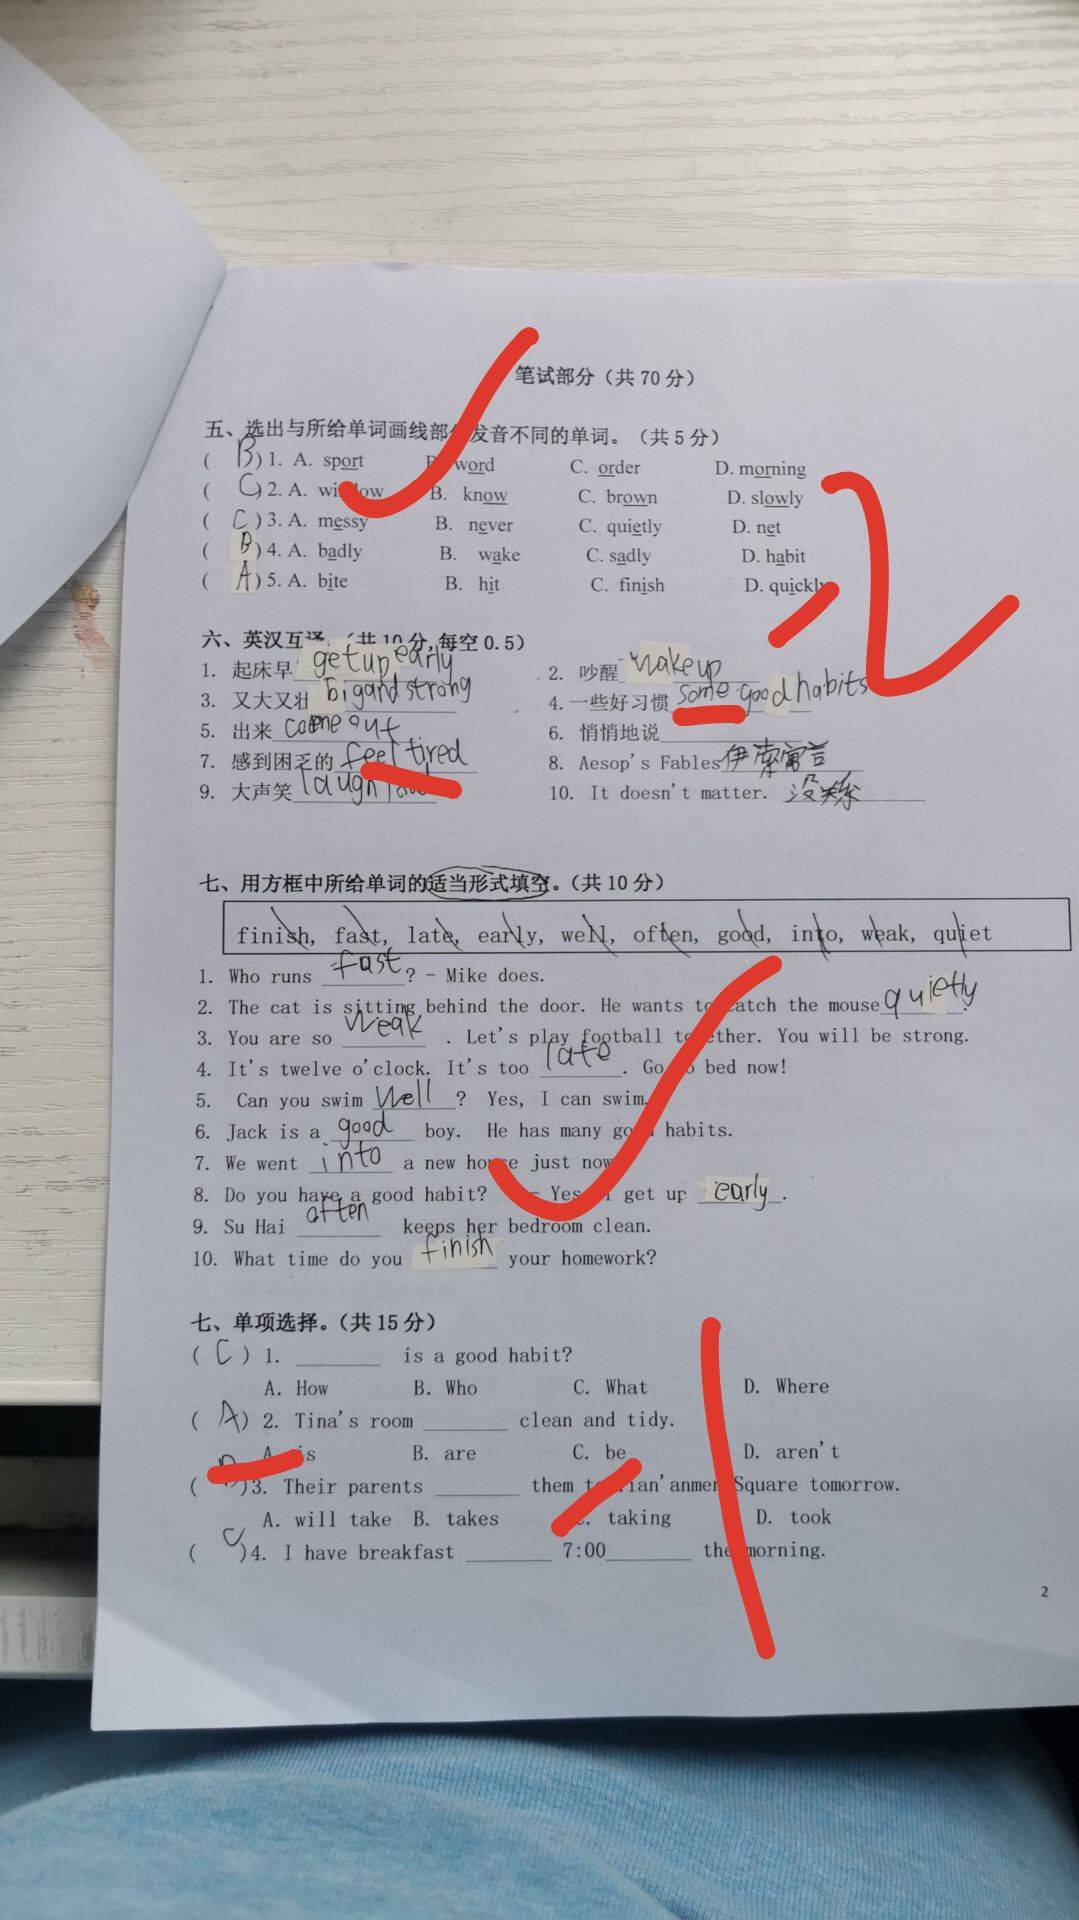 笔试部分（共 70 分）
五、选出与所给单词画线部分发音不同的单词。（共 5 分）
( B ) 1. A. sport B. word C. order D. morning
( C ) 2. A. window B. know C. brown D. slowly
( C ) 3. A. messy B. never C. quietly D. net
( B ) 4. A. badly B. wake C. sadly D. habit
( A ) 5. A. bite B. hit C. finish D. quickly
六、英汉互译。（共 10 分,每空 0.5）
1. 起床早 get up early 2. 吵醒 wake up
3. 又大又壮 big and strong 4. 一些好习惯 some good habits
5. 出来 come out 6. 悄悄地说
7. 感到困乏的 feel tired 8. Aesop's Fables 伊索寓言
9. 大声笑 laugh loud 10. It doesn't matter. 没关系
七、用方框中所给单词的适当形式填空。（共 10 分）
finish, fast, late, early, well, often, good, into, weak, quiet
1. Who runs fast ? - Mike does.
2. The cat is sitting behind the door. He wants to catch the mouse quietly.
3. You are so weak . Let's play football together. You will be strong.
4. It's twelve o'clock. It's too late . Go to bed now!
5. Can you swim well ? Yes, I can swim.
6. Jack is a good boy. He has many good habits.
7. We went into a new house just now
8. Do you have a good habit? - Yes, I get up early .
9. Su Hai often keeps her bedroom clean.
10. What time do you finish your homework?
七、单项选择。（共 15 分）
( C ) 1. ________ is a good habit?
A. How B. Who C. What D. Where
( A ) 2. Tina's room ________ clean and tidy.
A. is B. are C. be D. aren't
( ) 3. Their parents ________ them to Tian'anmen Square tomorrow.
A. will take B. takes C. taking D. took
( C ) 4. I have breakfast ________ 7:00 ________ the morning.
2